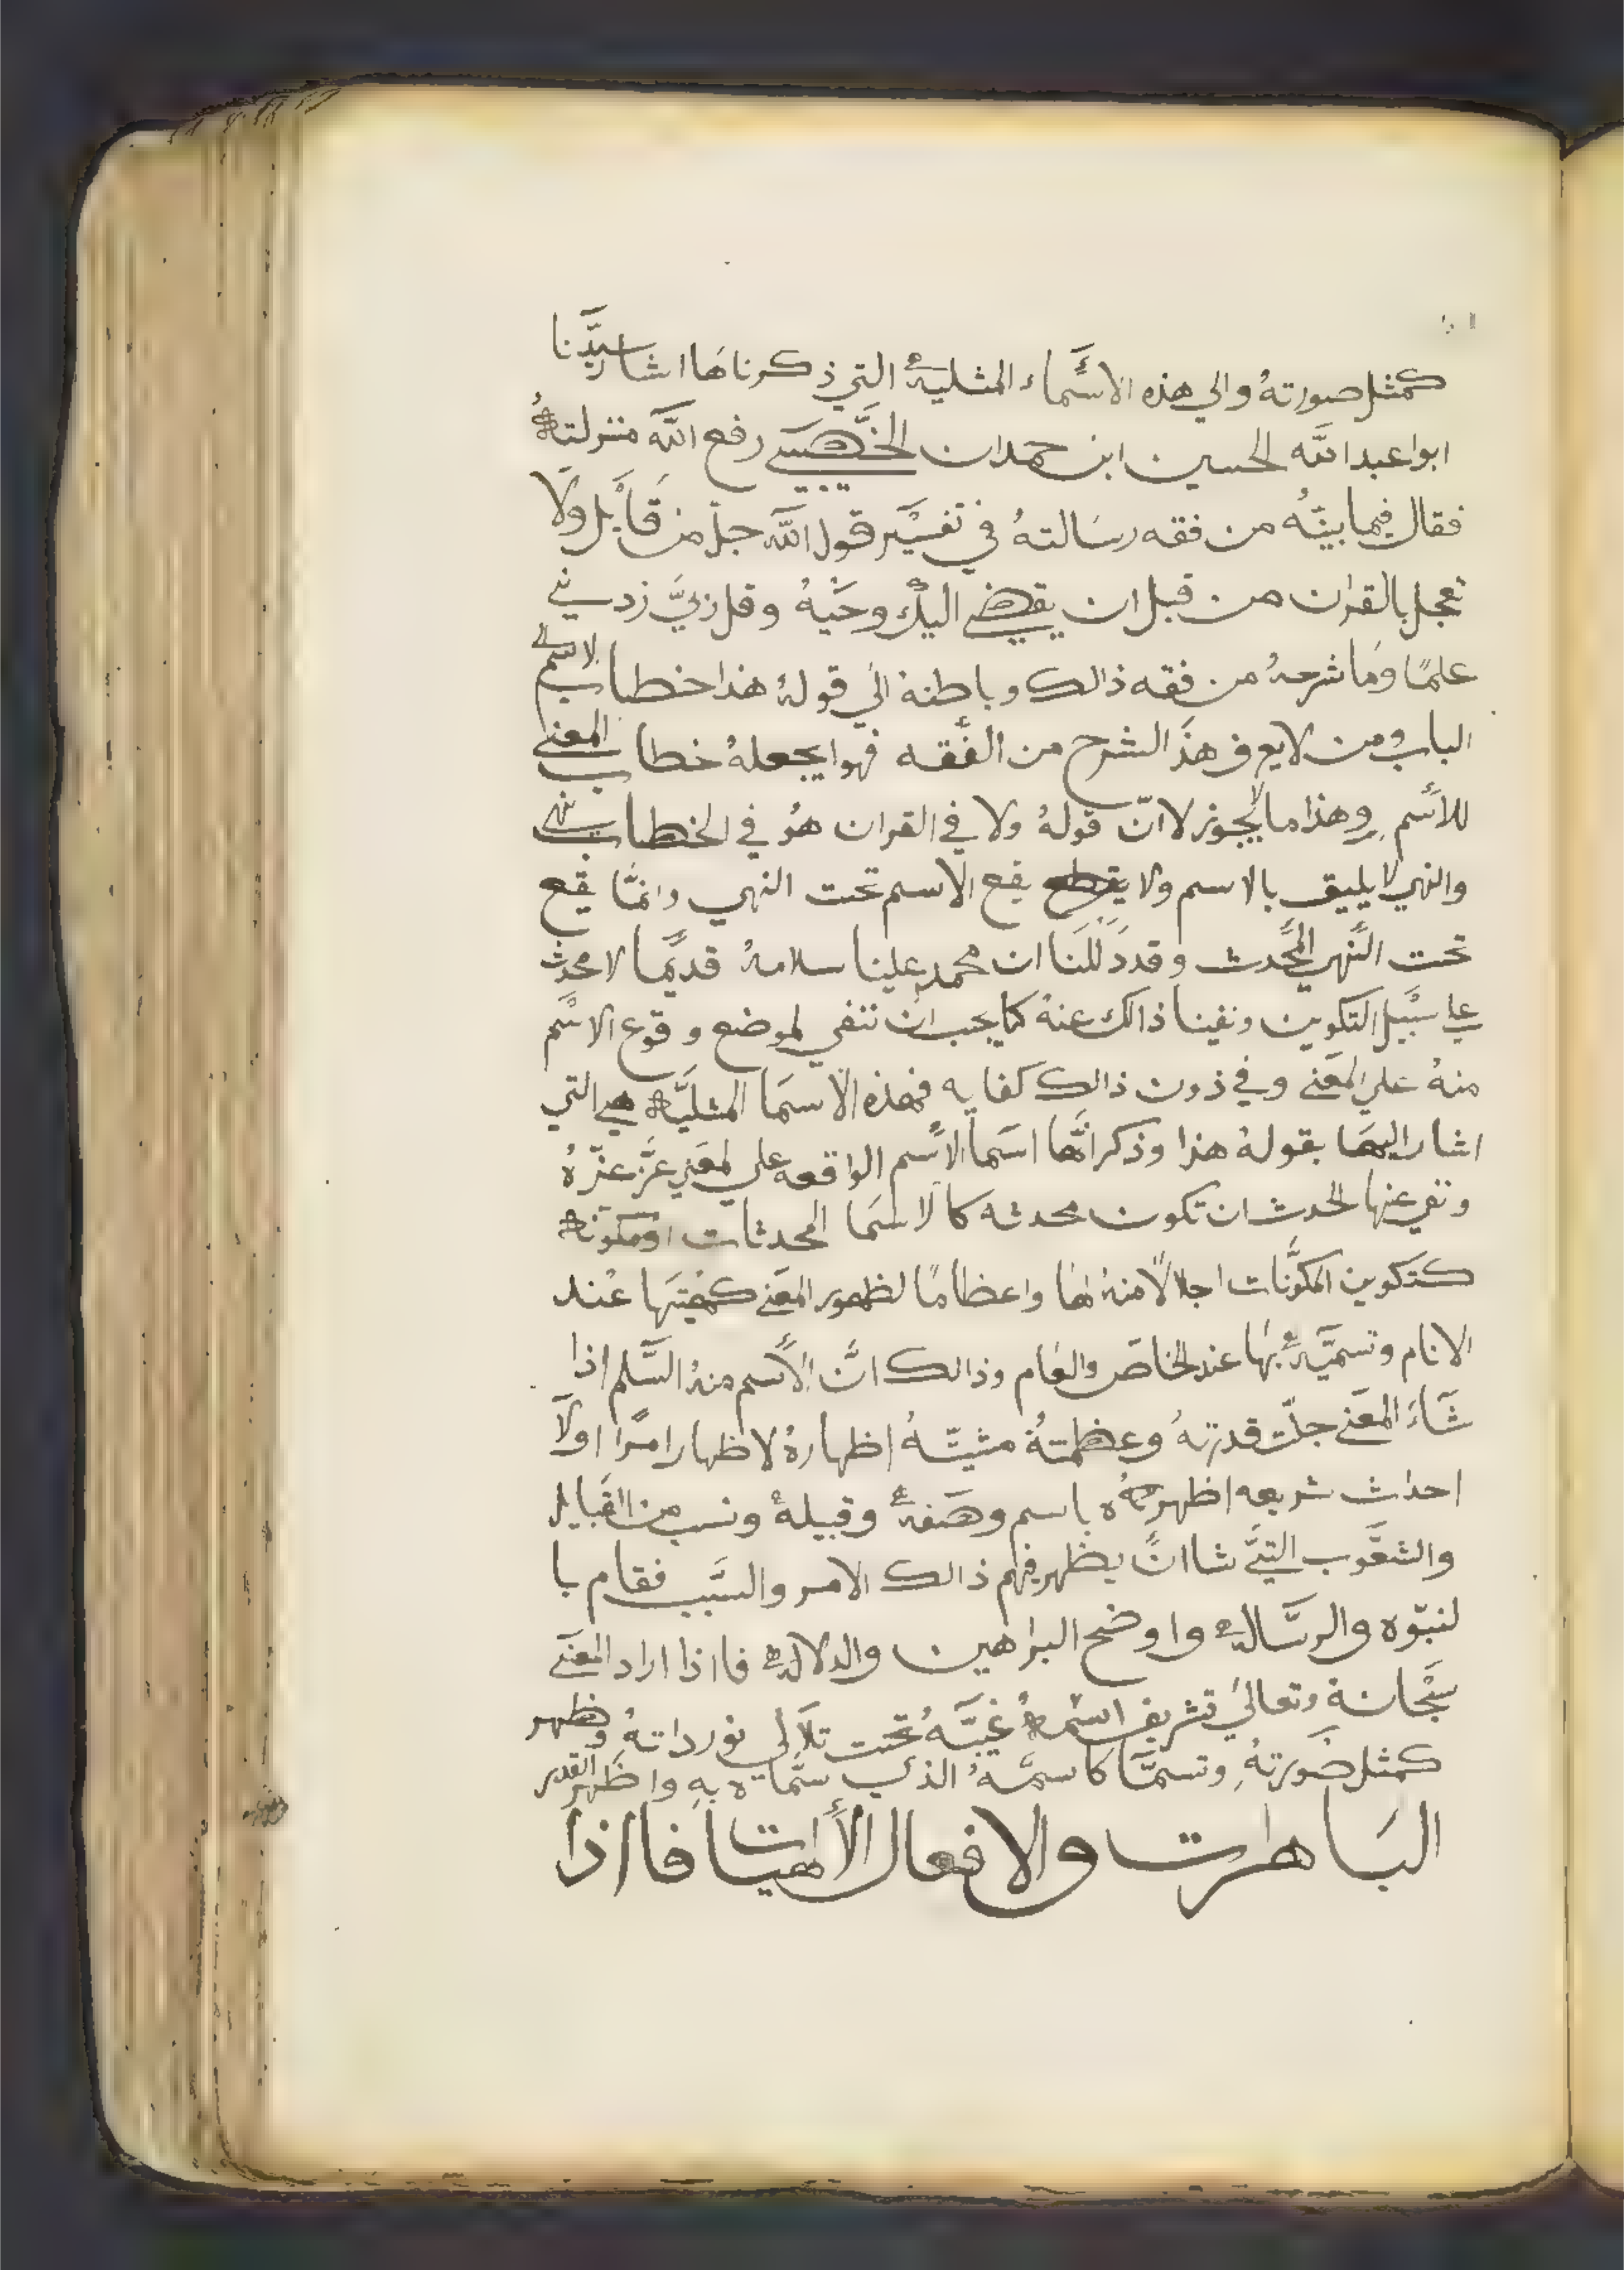 كمثل صورته والي هذه الاسماء المثلية التي ذكرناها اشار سيدنا
ابوا عبد الله الحسين ابن حمدان الخصيبي رفع الله منزلته
فقال فيما بينه من فقه رسالته في تفسير قول الله جل من قايل ولا
تعجل بالقران من قبل ان يقضي اليك وحيه وقل ربي زدني
علما وما شرحه من فقه ذالك وباطنه الي قوله هذا خطاب الاسم
الباب ومن لا يعرف هذ الشرح من الفقه فهوا يجعله خطاب المعني
للاسم وهذا ما لا يجوز لا ان قوله ولا في القران هو في الخطاب نهي
والنهي لا يليق بالاسم ولا يقع الاسم تحت النهي وانما يقع
تحت النهي المحدث وقد دللنا ان محمد علينا سلامه قديما لا محدث
علي سبيل التكوين ونفينا ذالك عنه كما يجب ان ننفي لموضع وقوع الاسم
منه علي المعني وفي دون ذالك كفايه فهذه الاسما المثلية هي التي
اشار اليها بقوله هذا وذكر انها اسما الاسم الواقعه علي المعني عز عزه
ونفي عنها الحدث ان تكون محدثه كا لاسما المحدثات او مكونة
كتكوين المكونات اجلالا منه لها واعظاما لظهور المعني كهيتها عند
الانام وتسمية بها عند الخاص والعام وذالك ان الاسم منه السلم اذا
شاء المعني جلت قدرته وعظمته مشيته اظهاره لاظهار امرا اولا
احداث شريعه اظهره باسم وصفة وقبيلة ونسب من القبايل
والشعوب التي شا ان يظهر فيهم ذالك الامر والسبب فقام با
لنبوه والرسالة واوضح البراهين والدلالة فااذا اراد المعني
سبحانه وتعالي تشريف اسمه غيبه تحت تلالي نور داته وظهر
كمثل صورته وتسما كاسمه الذي سماه به واظهر القدر
الباهرت والافعال الالهيات فااذا